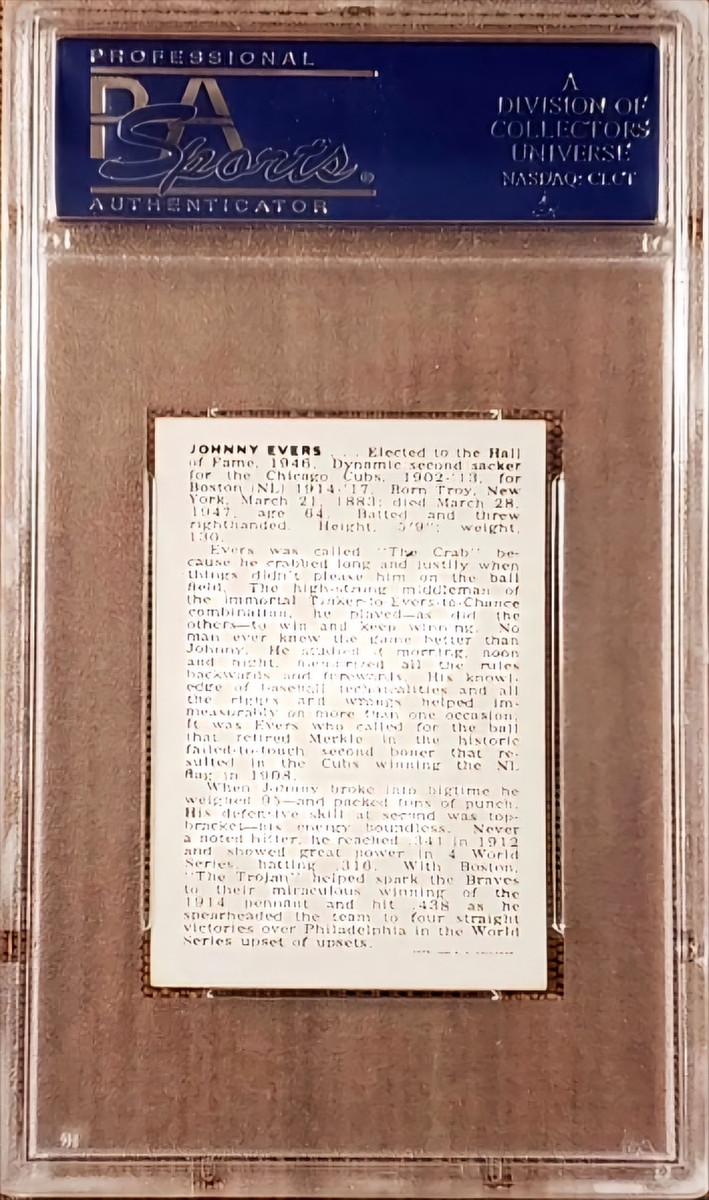 PROFESSIONAL
PSA
Sports®
AUTHENTICATOR
A
DIVISION OF
COLLECTORS
UNIVERSE
NASDAQ: CLCT
JOHNNY EVERS . . . Elected to the Hall
of Fame, 1946. Dynamic second sacker
for the Chicago Cubs, 1902-'13, for
Boston (NL) 1914-'17. Born Troy, New
York, March 21, 1883; died March 28,
1947, age 64. Batted and threw
righthanded. Height, 5'9"; weight,
130.
Evers was called "The Crab" be-
cause he crabbed long and justily when
things didn't please him on the ball
field. The high-strung middleman of
the immortal Tinker-to Evers-to-Chance
combination, he played—as did the
others—to win and keep winning. No
man ever knew the game better than
Johnny. He studied it morning, noon
and night, memorized all the rules
backwards and forewards. His knowl-
edge of baseball technicalities and all
the rights and wrongs helped im-
measurably on more than one occasion.
It was Evers who called for the ball
that retired Merkle in the historic
failed-to-touch second boner that re-
sulted in the Cubs winning the NL
flag in 1908.
When Johnny broke into bigtime he
weighed 95—and packed tons of punch.
His defensive skill at second was top-
bracket—his energy boundless. Never
a noted hitter, he reached .341 in 1912
and showed great power in 4 World
Series, batting .316. With Boston,
"The Trojan" helped spark the Braves
to their miraculous winning of the
1914 pennant and hit .438 as he
spearheaded the team to four straight
victories over Philadelphia in the World
Series upset of upsets.